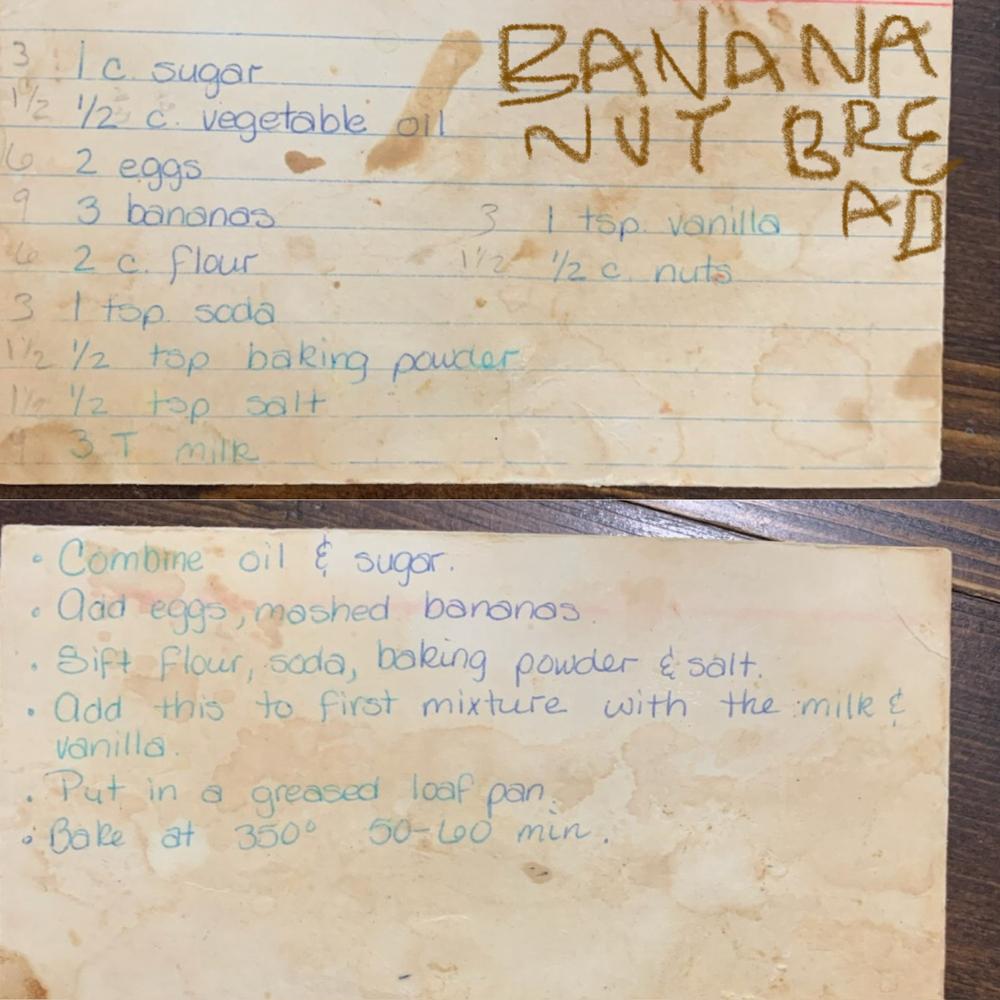 BANANA
NUT BRE
AD
3 1 c. sugar
1 1/2 1/2 c. vegetable oil
6 2 eggs
9 3 bananas
3 1 tsp. vanilla
6 2 c. flour
1 1/2 1/2 c. nuts
3 1 tsp. soda
1 1/2 1/2 tsp baking powder
1 1/2 1/2 tsp salt
3 T milk
• Combine oil & sugar.
• Add eggs, mashed bananas.
• Sift flour, soda, baking powder & salt.
• Add this to first mixture with the milk &
vanilla.
• Put in a greased loaf pan.
• Bake at 350° 50-60 min.